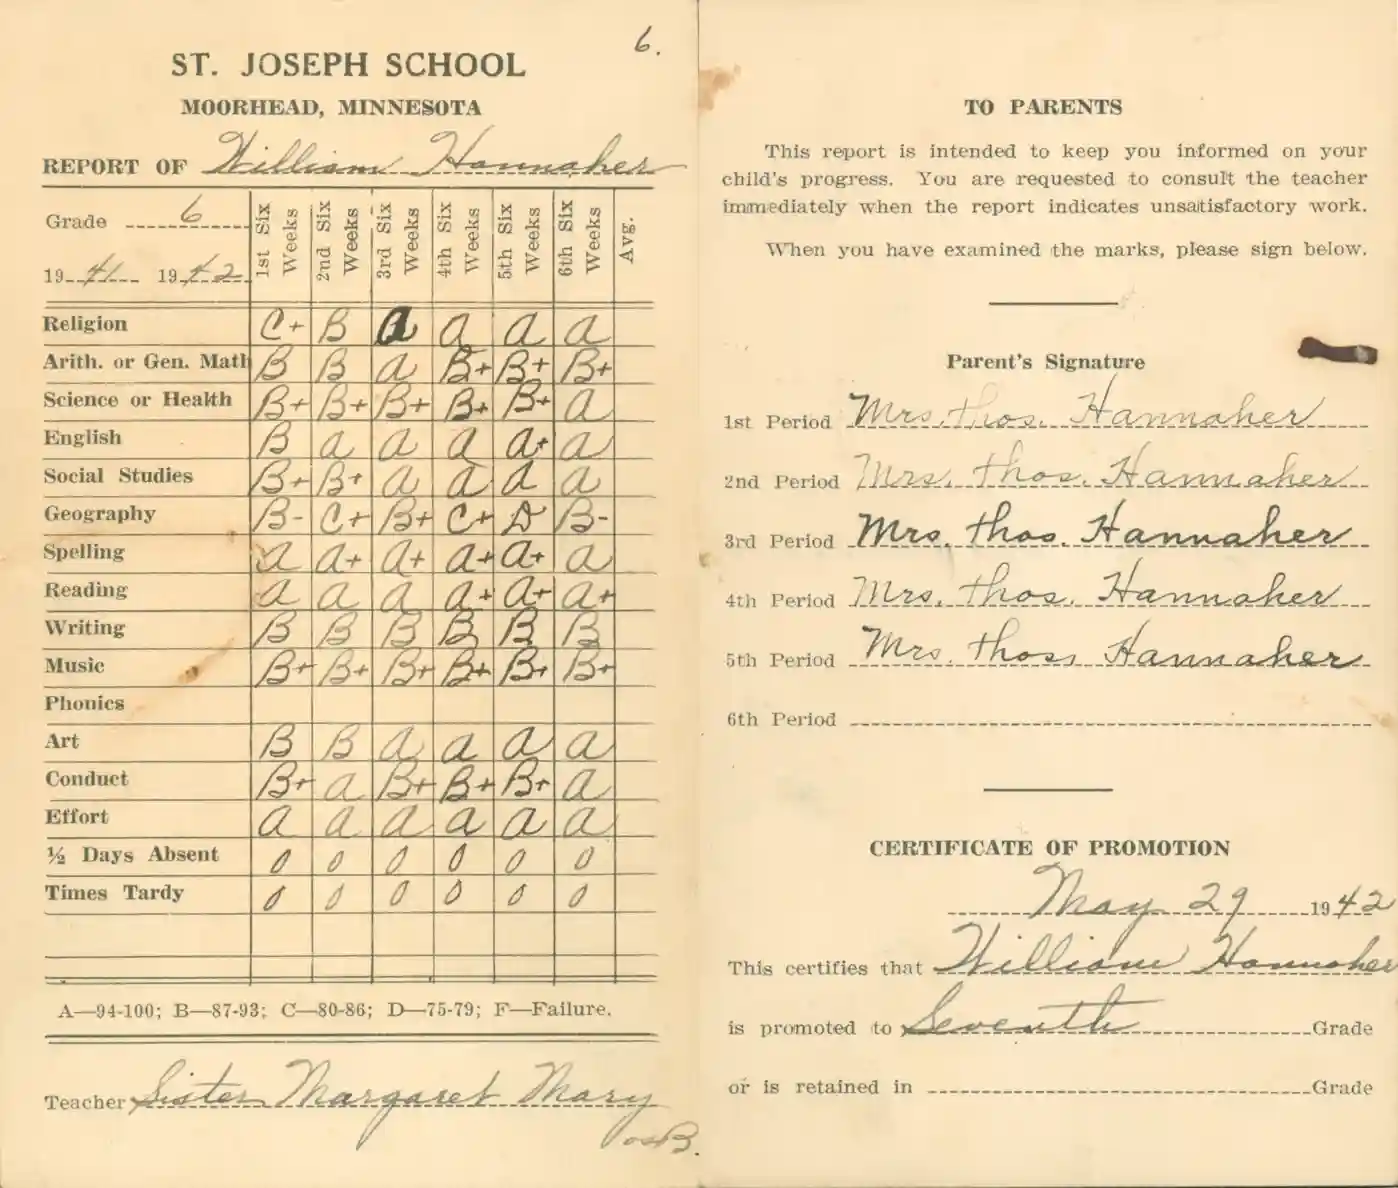 6.
ST. JOSEPH SCHOOL
MOORHEAD, MINNESOTA
REPORT OF William Hannaher
Grade 6
1941 1942
1st Six Weeks 2nd Six Weeks 3rd Six Weeks 4th Six Weeks 5th Six Weeks 6th Six Weeks Avg.
Religion C+ B A A A A
Arith. or Gen. Math B B A B+ B+ B+
Science or Health B+ B+ B+ B+ B+ A
English B A A A A+ A
Social Studies B+ B+ A A A A
Geography B- C+ B+ C+ D B-
Spelling A A+ A+ A+ A+ A
Reading A A A A+ A+ A+
Writing B B B B B B
Music B+ B+ B+ B+ B+ B+
Phonics
Art B B A A A A
Conduct B+ A B+ B+ B+ A
Effort A A A A A A
½ Days Absent 0 0 0 0 0 0
Times Tardy 0 0 0 0 0 0
A—94-100; B—87-93; C—80-86; D—75-79; F—Failure.
Teacher Sister Margaret Mary
TO PARENTS
This report is intended to keep you informed on your
child's progress. You are requested to consult the teacher
immediately when the report indicates unsatisfactory work.
When you have examined the marks, please sign below.
Parent's Signature
1st Period Mrs. Thos. Hannaher
2nd Period Mrs. Thos. Hannaher
3rd Period Mrs. Thos. Hannaher
4th Period Mrs. Thos. Hannaher
5th Period Mrs. Thos. Hannaher
6th Period
CERTIFICATE OF PROMOTION
May 29 1942
This certifies that William Hannaher
is promoted to Seventh Grade
or is retained in Grade